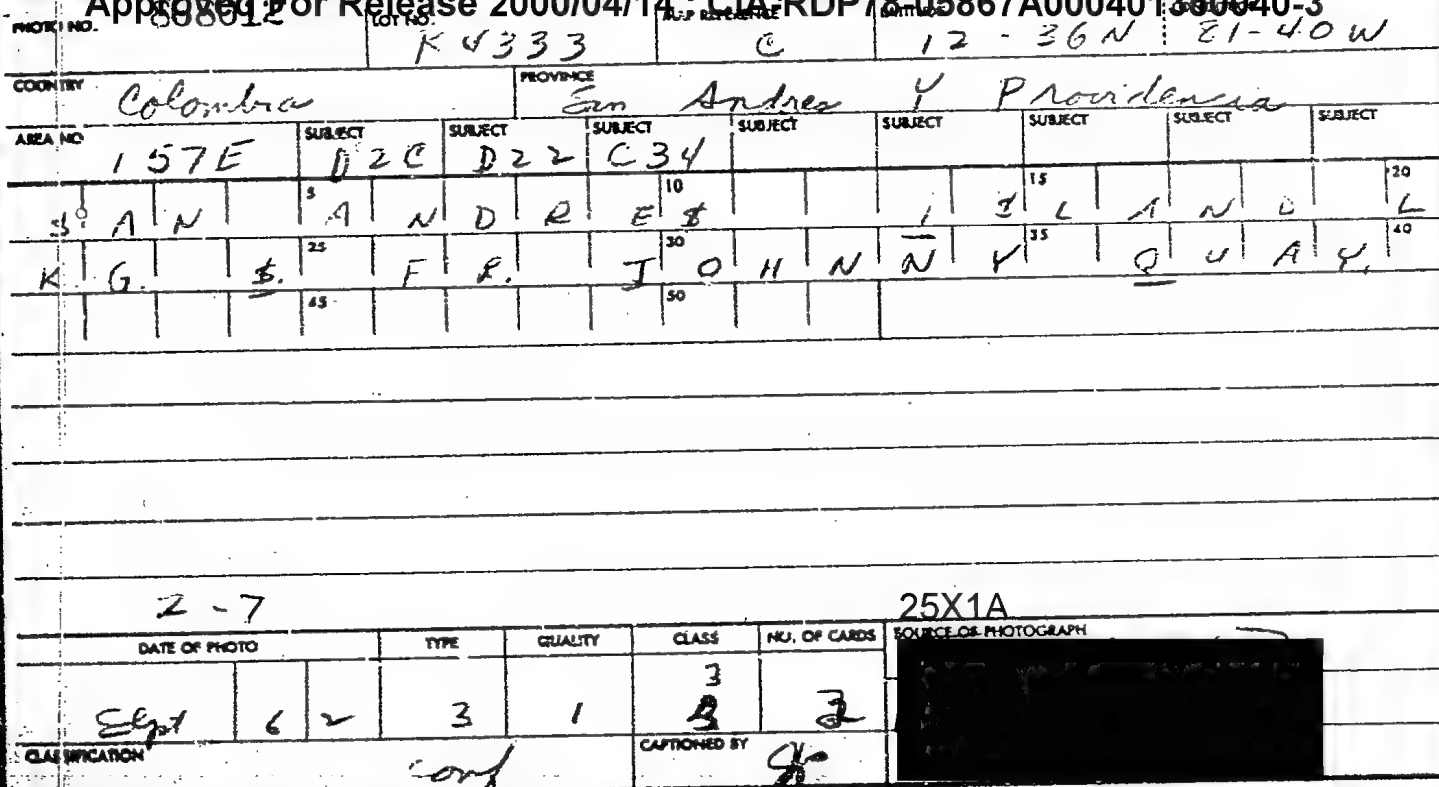 Approved For Release 2000/04/14 : CIA-RDP78-05867A000401380040-3
PHOTO NO. 808012 LOT NO. K4333 MAP REFERENCE C LATITUDE 12 - 36N 81-40W
COUNTRY Colombia PROVINCE San Andres Y Providencia
AREA NO 157E SUBJECT D2C SUBJECT D22 SUBJECT C34 SUBJECT SUBJECT SUBJECT SUBJECT SUBJECT
SAN 5 ANDRE 10 S I 15 SLAND 20 L
KG. S. 25 FR. 30 JOHNNY 35 QUAY. 40
45 50
2 - 7
25X1A
DATE OF PHOTO TYPE QUALITY CLASS NO. OF CARDS SOURCE OF PHOTOGRAPH
3
Sept 62 3 1 3
CLASSIFICATION conf CAPTIONED BY